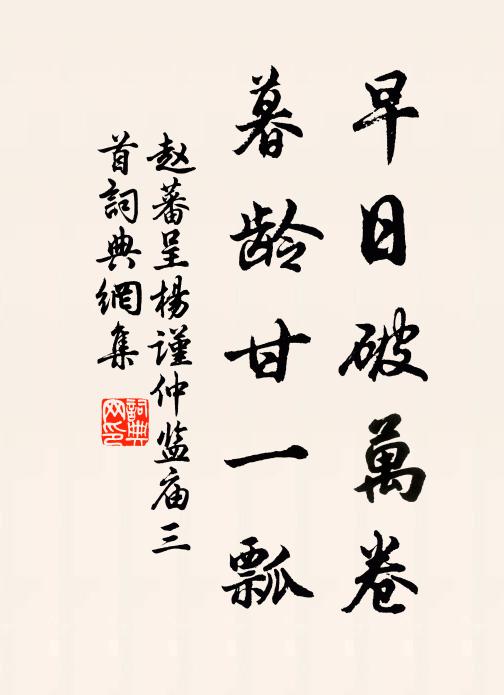 早日破萬卷
暮龄甘一瓢
赵蕃呈楊谨仲监庙三
首詞典網集
詞典
网印